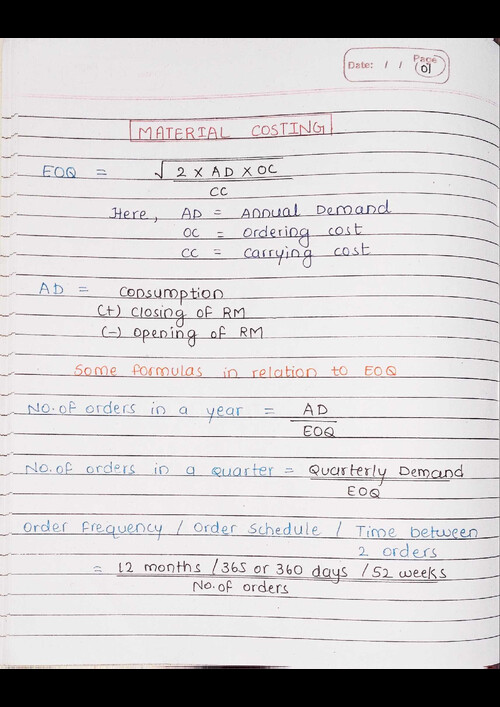 Date: / / Page 01
MATERIAL COSTING
EOQ = √2 X AD X OC
CC
Here, AD = Annual Demand
OC = ordering cost
CC = carrying cost
AD = consumption
(+) closing of RM
(-) opening of RM
Some formulas in relation to EOQ
No. of orders in a year = AD
EOQ
No. of orders in a quarter = Quarterly Demand
EOQ
Order frequency / Order Schedule / Time between
2 orders
= 12 months / 365 or 360 days / 52 weeks
No. of orders